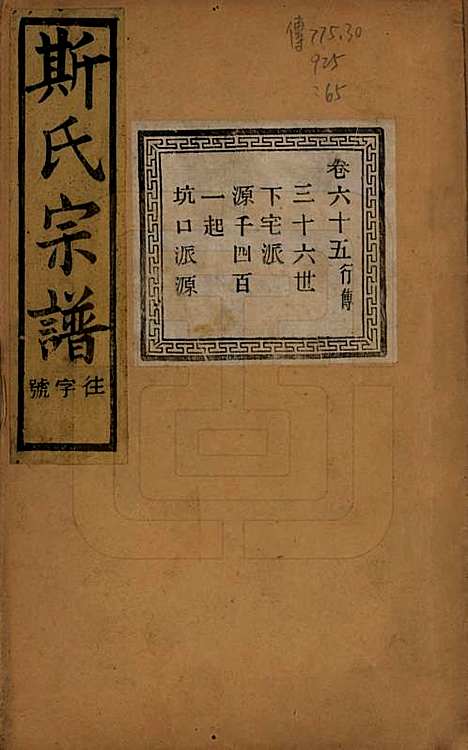 斯氏宗譜
往字號
卷六十五行傳
三十六世
下宅派
源千四百
一起
坑口派源
傳 775.30
925
:65